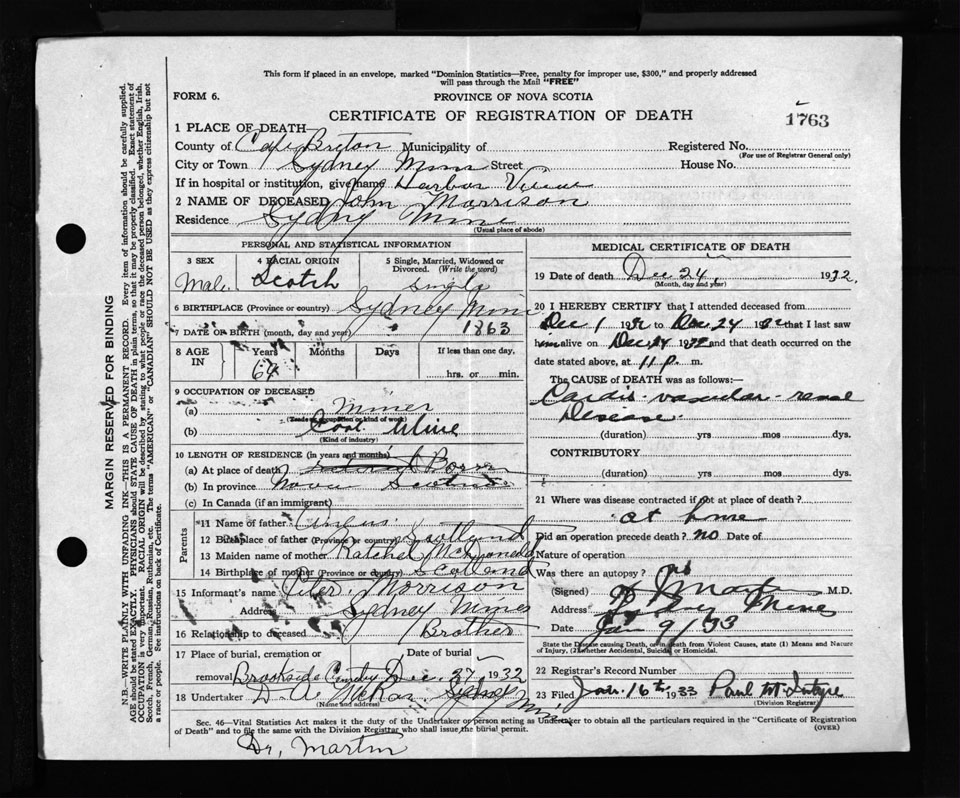 This form if placed in an envelope, marked "Dominion Statistics—Free, penalty for improper use, $300," and properly addressed
will pass through the Mail "FREE"
FORM 6.
PROVINCE OF NOVA SCOTIA
CERTIFICATE OF REGISTRATION OF DEATH
1763
1 PLACE OF DEATH
County of Cape Breton Municipality of Registered No.
(For use of Registrar General only)
City or Town Sydney Mines Street House No.
If in hospital or institution, give name Harbor View
2 NAME OF DECEASED John Morrison
Residence Sydney Mines
(Usual place of abode)
PERSONAL AND STATISTICAL INFORMATION
3 SEX
Male
4 RACIAL ORIGIN
Scotch
5 Single, Married, Widowed or
Divorced. (Write the word)
Single
6 BIRTHPLACE (Province or country) Sydney Mines
7 DATE OR BIRTH (month, day and year) 1863
8 AGE
IN
Years Months Days If less than one day,
64 hrs. or min.
9 OCCUPATION OF DECEASED
(a) Miner
(Trade, occupation or kind of work)
(b) Coal Mine
(Kind of industry)
10 LENGTH OF RESIDENCE (in years and months)
(a) At place of death Born
(b) In province Nova Scotia
(c) In Canada (if an immigrant)
Parents
*11 Name of father Angus
12 Birthplace of father (Province or country) Scotland
13 Maiden name of mother Rachel McDonald
14 Birthplace of mother (Province or country) Scotland
15 Informant's name Peter Morrison
Address Sydney Mines
16 Relationship to deceased Brother
17 Place of burial, cremation or Date of burial
removal Brookside Cemetery Dec. 27 1932
18 Undertaker D. A. McKay Sydney Mines
(Name and address)
MEDICAL CERTIFICATE OF DEATH
19 Date of death Dec 24, 1932.
(Month, day and year)
20 I HEREBY CERTIFY that I attended deceased from
Dec 1 1932 to Dec 24 1932 that I last saw
him alive on Dec 24 1932 and that death occurred on the
date stated above, at 11 p. m.
The CAUSE OF DEATH was as follows:—
Cardio-vascular-renal
Disease.
(duration) yrs mos dys.
CONTRIBUTORY.
(duration) yrs mos dys.
21 Where was disease contracted if not at place of death?
at home
Did an operation precede death? no Date of
Nature of operation
Was there an autopsy? no
(Signed) M.D.
Address Sydney Mines
Date Jan 9/33
State the Disease causing death, or in death from Violent Causes, state (1) Means and Nature
of Injury, (2) whether Accidental, Suicidal or Homicidal.
22 Registrar's Record Number
23 Filed Jan. 16th 1933 Paul McIntyre
(Division Registrar)
Sec. 46—Vital Statistics Act makes it the duty of the Undertaker or person acting as Undertaker to obtain all the particulars required in the "Certificate of Registration
of Death" and to file the same with the Division Registrar who shall issue the burial permit.
(OVER)
Dr. Martin
MARGIN RESERVED FOR BINDING
N.B.—WRITE PLAINLY WITH UNFADING INK—THIS IS A PERMANENT RECORD. Every item of information should be carefully supplied.
AGE should be stated EXACTLY. PHYSICIANS should STATE CAUSE OF DEATH in plain terms, so that it may be properly classified. Exact statement of
OCCUPATION is very important. RACIAL ORIGIN will be described by stating to what people or race the deceased person belonged, whether English, Irish,
Scotch, French, German, Russian, Ruthenian, etc. The terms "AMERICAN" or "CANADIAN" SHOULD NOT BE USED as they express citizenship but not
a race or people. See instructions on back of Certificate.